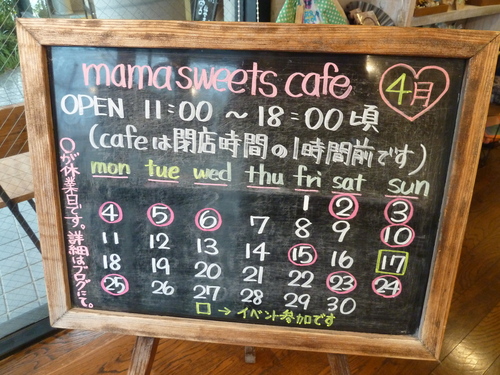 mama sweets cafe
4月
OPEN 11:00 ~ 18:00 頃
(cafeは閉店時間の1時間前です)
mon tue wed thu fri sat sun
1 2 3
4 5 6 7 8 9 10
11 12 13 14 15 16 17
18 19 20 21 22 23 24
25 26 27 28 29 30
□→イベント参加です
○が休業日です。詳細はブログにて。